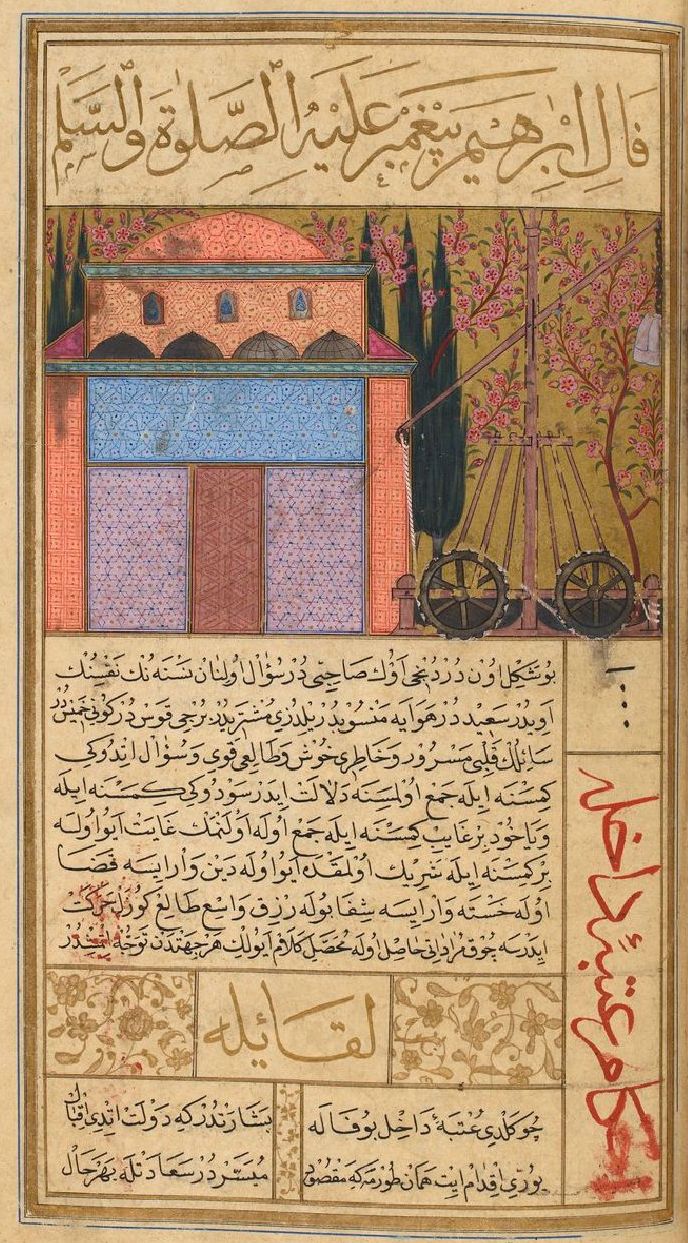 فال ابرهيم پيغمبر عليه الصلوة والسلم
بو شكل اون دردنجى اوك صاحبى در سؤال اولنان نسنه نك نفسنك
اويدر سعيد در هوايه منسوبدر يلدزى مشتريدر برجى قوس در كونى خميس در
سائلك قلبى مسرور و خاطرى خوش و طالعى قوى و سؤال اندوكى
كمسنه ايله جمع اولمسنه دلالت ايدر سودوكى كمسنه ايله
و ياخود بر غايب كمسنه ايله جمع اوله اولنمك غايت ايو اوله
بر كمسنه ايله شريك اولمقده ايو اوله دين وار ايسه قضا
اوله خسته وار ايسه شفا بوله رزق واسع طالع كوزل حركت
ايدرسه چوق مراداتى حاصل اوله محصل كلام ايولك هر جهتدن توجه ايتشدر
احكام عتبهٔ داخله
لقائله
چو كلدى عتبهٔ داخل بو فاله
بشارتدر كه دولت اتدى اقبال
يورى اقدام ايت همان طورمه كه مقصود
ميسر در سعادتله بهر حال